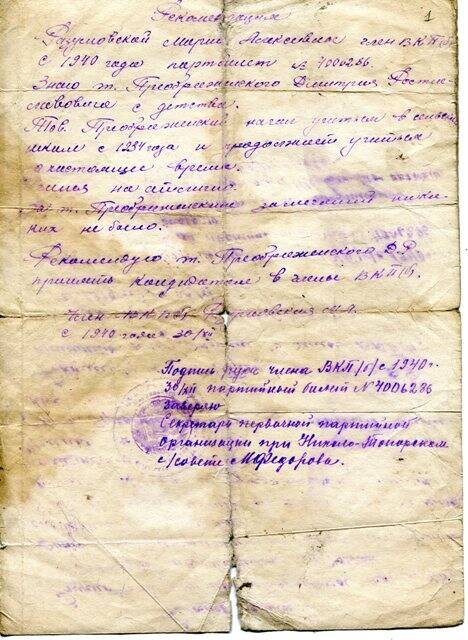 1
Рекомендация
Разумовской Марии Алексеевны член ВКП(б)
с 1940 года партбилет № 4006286.
Знаю т. Преображенского Дмитрия Ростис-
лавовича с детства.
Тов. Преображенский начал учиться в сельской
школе с 1934 года и продолжает учиться
в настоящее время.
за т. Преображенским замечаний ника-
ких не было.
Рекомендую т. Преображенского Д.Р.
принять кандидатом в члены ВКП(б).
Член ВКП(б) Разумовская М.А.
с 1940 года 30/XII
Подпись руки члена ВКП/б/ с 1940 г.
30/XII партийный билет № 4006286
заверяю
Секретарь первичной партийной
Организации при Николо-Топорском
с/совете М.Федорова.